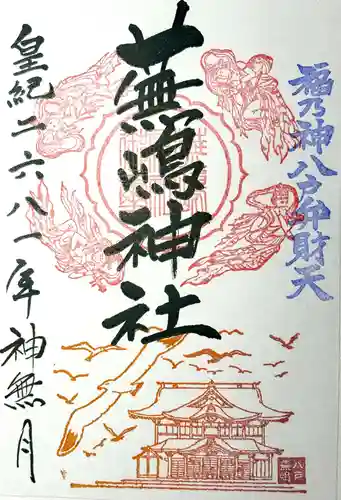 福乃神八戸弁財天
蕪嶋神社
皇紀二六八一年神無月
八戸
蕪嶋